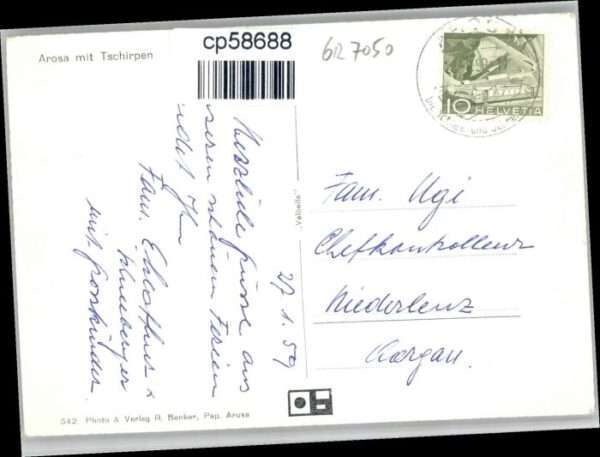 Arosa mit Tschirpen
cp58688
GR 7050
10 HELVETIA
27.1.59
Herzliche Grüsse aus
seren schönen Ferien
Ihnen
Fam.
mit Grosskinder.
"Valbella"
Fam. Hugi
Chefkontrolleur
Niederlenz
Aargau.
542 Photo & Verlag R. Benker, Pap. Arosa